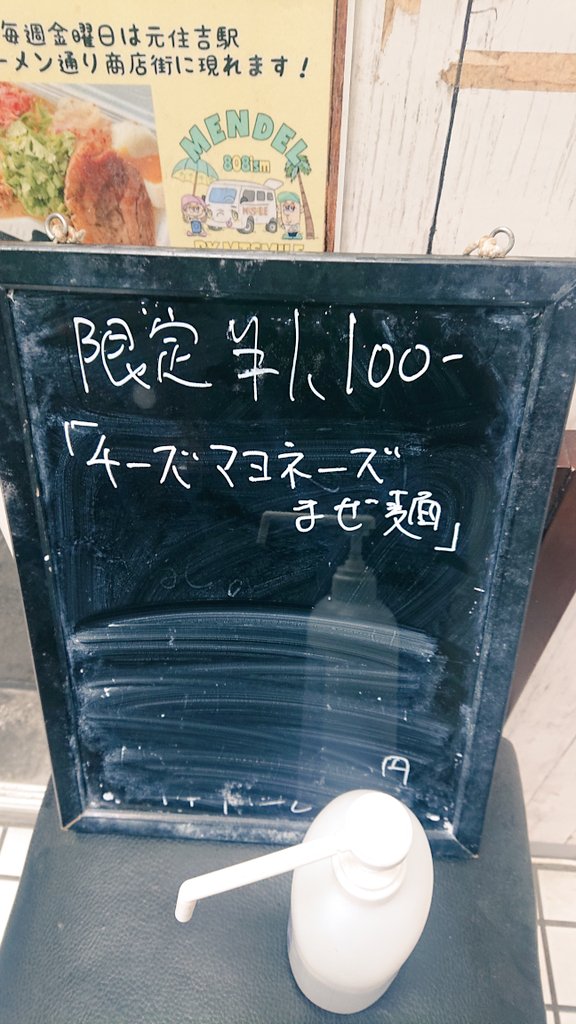 毎週金曜日は元住吉駅
ーメン通り商店街に現れます！
MENDEL
808ism
限定 ¥1,100-
「チーズマヨネーズ
まぜ麺」
円